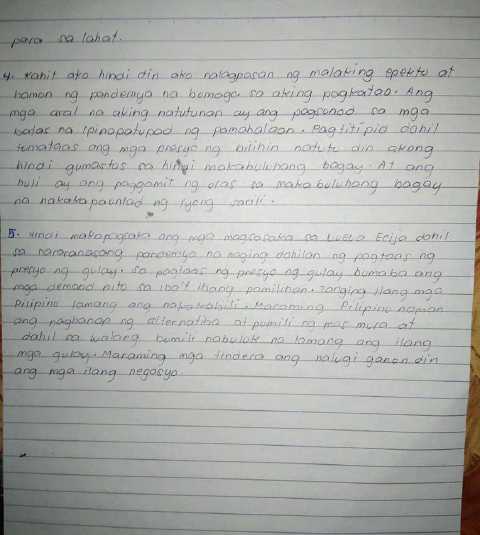 para sa lahat.
4. Kahit ako hindi din ako nalagpasan ng malaking epekto at
hamon ng pandemya na bumago sa aking pagkatao. Ang
mga aral na aking natutunan ay ang pagsunod sa mga
batas na ipinapatupad ng pamahalaan. Pagtitipid dahil
tumataas ang mga presyo ng bilihin natuto din akong
hindi gumastos sa hindi makabuluhang bagay. At ang
huli ay ang paggamit ng oras sa makabuluhang bagay
na nakakapaunlad ng iyong sarili.
5. Hindi makapagsaka ang mga magsasaka sa Nueba Ecija dahil
sa nararanasang pandemya na naging dahilan ng pagtaas ng
presyo ng gulay. Sa pagtaas ng presyo ng gulay bumaba ang
mga demand nito sa iba't ibang pamilihan. Tanging ilang mga
Pilipino lamang ang nakakabili. Maraming Pilipino naman
ang naghanap ng alternatiba at pumili ng mas mura at
dahil sa walang bumili nabulok na lamang ang ilang
mga gulay. Maraming mga tindera ang nalugi ganon din
ang mga ilang negosyo.